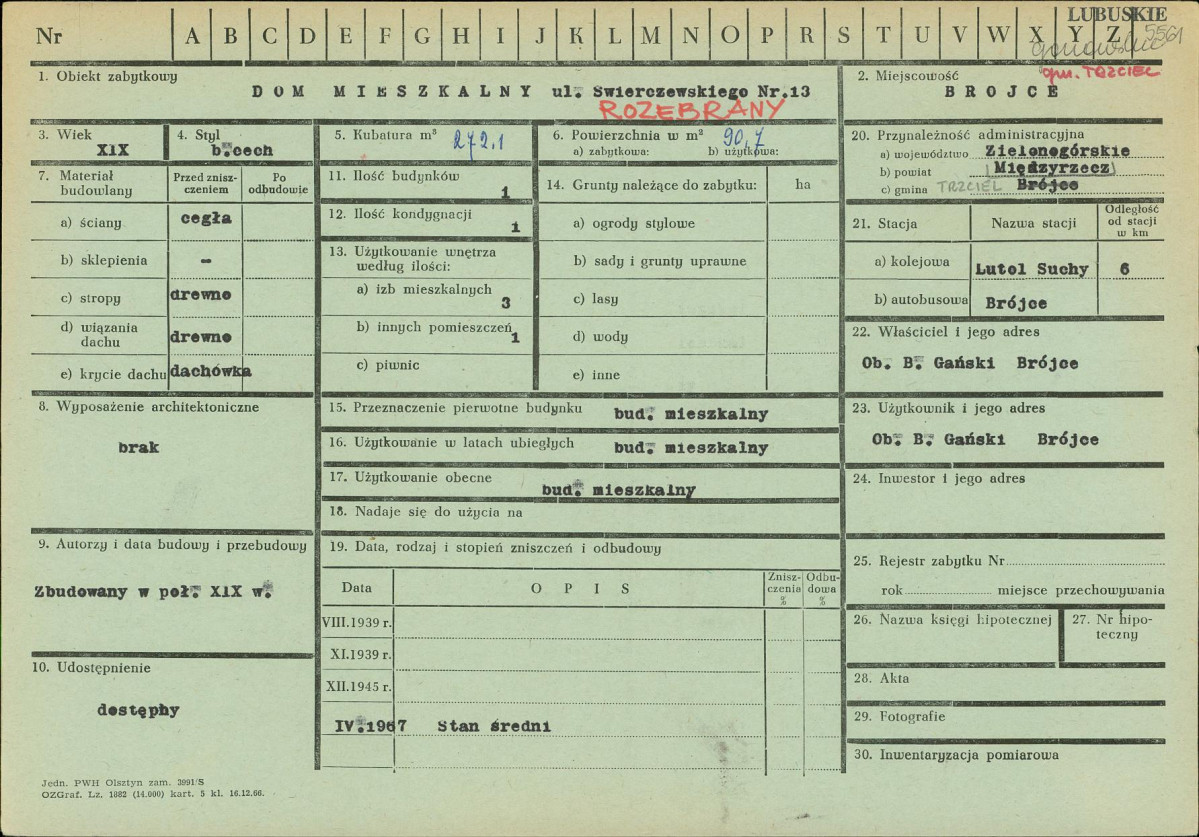 LUBUSKIE
5561
Nr A B C D E F G H I J K L M N O P R S T U V W X Y Z
gm. TRZCIEL
1. Obiekt zabytkowy
DOM MIESZKALNY ul. Świerczewskiego Nr.13
ROZEBRANY
2. Miejscowość
BROJCE
3. Wiek
XlX
4. Styl
b.cech
5. Kubatura m³ 272.1
6. Powierzchnia w m² 90,7
a) zabytkowa: b) użytkowa:
7. Materiał budowlany
Przed znisz-
czeniem
Po
odbudowie
a) ściany cegła
b) sklepienia -
c) stropy drewno
d) wiązania
dachu drewno
e) krycie dachu dachówka
8. Wyposażenie architektoniczne
brak
9. Autorzy i data budowy i przebudowy
Zbudowany w poł. XlX w.
10. Udostępnienie
dostępny
11. Ilość budynków
1
12. Ilość kondygnacji
1
13. Użytkowanie wnętrza
według ilości:
a) izb mieszkalnych
3
b) innych pomieszczeń
1
c) piwnic
14. Grunty należące do zabytku: ha
a) ogrody stylowe
b) sady i grunty uprawne
c) lasy
d) wody
e) inne
15. Przeznaczenie pierwotne budynku bud. mieszkalny
16. Użytkowanie w latach ubiegłych bud. mieszkalny
17. Użytkowanie obecne
bud. mieszkalny
18. Nadaje się do użycia na
19. Data, rodzaj i stopień zniszczeń i odbudowy
Data OPIS
Znisz-
czenia
%
Odbu-
dowa
%
VIII.1939 r.
XI.1939 r.
XII.1945 r.
IV.1967 Stan średni
20. Przynależność administracyjna
a) województwo Zielonogórskie
b) powiat Międzyrzecz
c) gmina TRZCIEL Brójce
21. Stacja Nazwa stacji
Odległość
od stacji
w km
a) kolejowa Lutol Suchy 6
b) autobusowa Brójce
22. Właściciel i jego adres
Ob. B. Gański Brójce
23. Użytkownik i jego adres
Ob. B. Gański Brójce
24. Inwestor i jego adres
25. Rejestr zabytku Nr
rok miejsce przechowywania
26. Nazwa księgi hipotecznej
27. Nr hipo-
teczny
28. Akta
29. Fotografie
30. Inwentaryzacja pomiarowa
Jedn. PWH Olsztyn zam. 3991/S
OZGraf. Lz. 1882 (14.000) kart. 5 kl. 16.12.66.